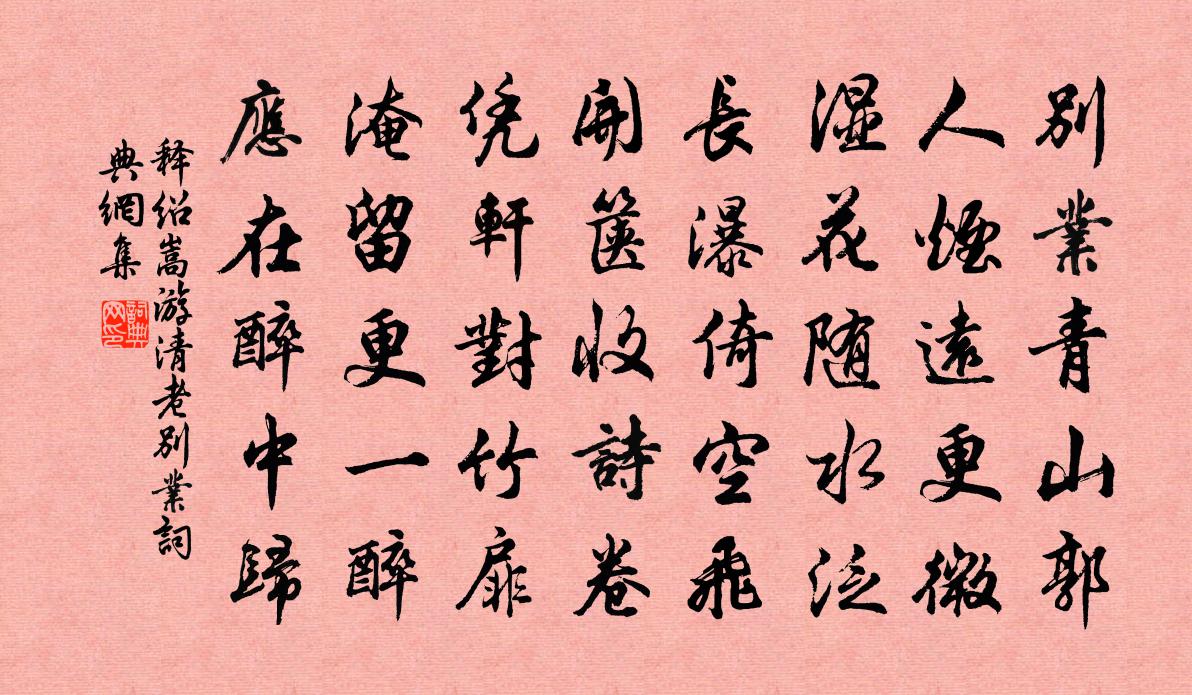 別業青山郭
人煙遠更微
湿花随水泛
長瀑倚空飛
開篋收詩卷
凭軒對竹扉
淹留更一醉
應在醉中歸
释紹嵩游清老別業詞
典網集
詞典网印